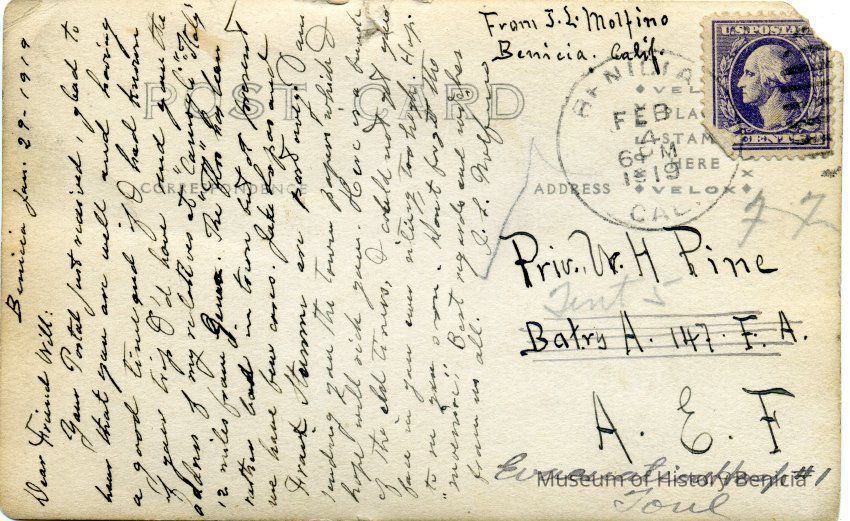 Benicia Jan. 29-1919
Dear Friend Will:
Your Postal just received, glad to
hear that you are well and having
a good time and if I had known
of your trip I'd have send you the
address of my relatives at "Camogli" Italy
12 miles from Genoa. The "Flu" has been
rather bad in town but at present
we have few cases. Jake Kopas and
Frank Stumm are part away. I am
sending you the town papers which I
hope will reach you. Here is a bunch
of the old timers, I could not get your
face in you were sitting too high. Hop.
to see you soon. Don't forget the
"movies." Best regards and wishes
from us all. J. L. Molfino
From J. L. Molfino
Benicia. Calif.
U.S. POSTAGE
CENTS
BENICIA
FEB
4
6 PM
1919
CAL.
POST CARD
CORRESPONDENCE
ADDRESS
VELOX
PLACE
STAMP
HERE
VELOX
77
Priv. W. H Pine
Tent 5
Batry A. 147. F. A.
A. E. F
#1
Toul
Museum of History Benicia